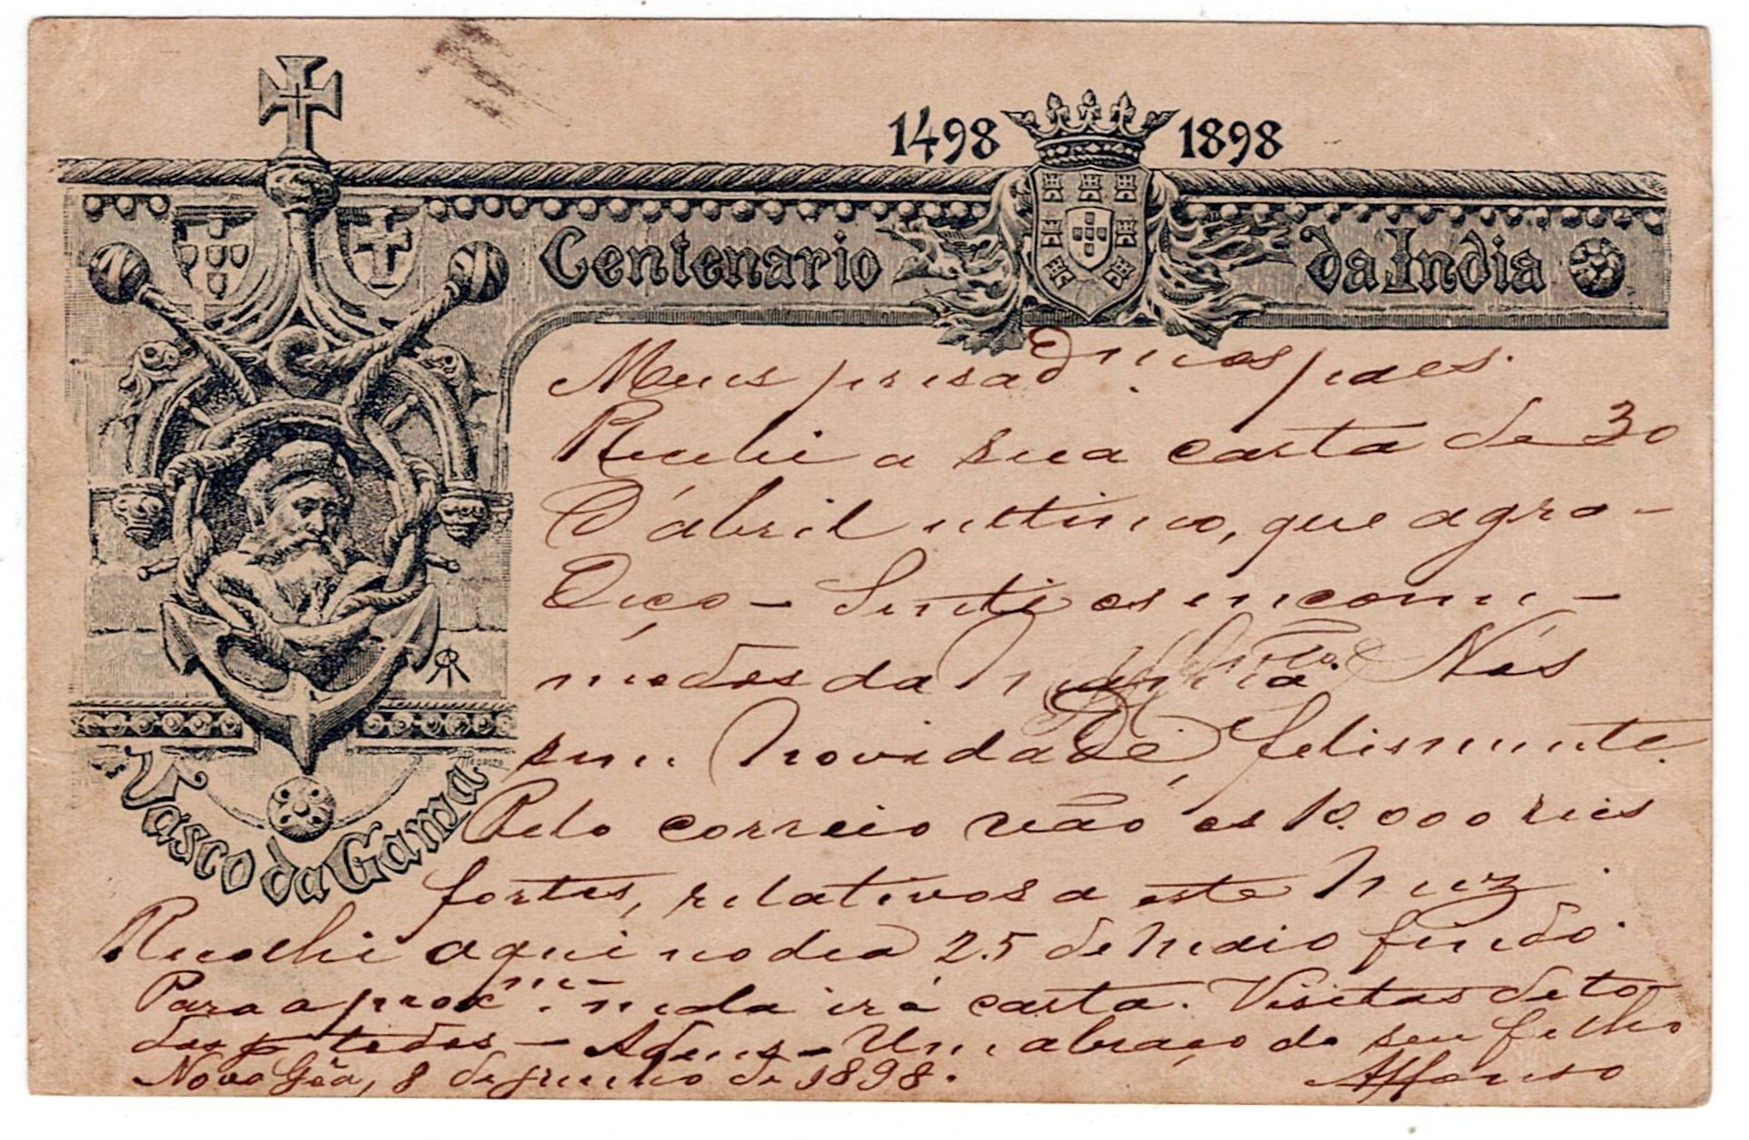 1498 1898
Centenario da India
Vasco da Gama
Meus presadmos paes.
Recebi a sua carta de 30
d'abril ultimo, que agra-
deço - Senti os incommo-
modos da Nós
sem novidade, felismente.
Pelo correio vão os 10.000 reis
fortes, relativos a este mez.
Recolhi aqui no dia 25 de maio findo.
Para a proxma. mala irá carta. Visitas de to-
dos p todos - Adeus - Um abraço do seu filho
Nova Gôa, 8 de junho de 1898.
Affonso